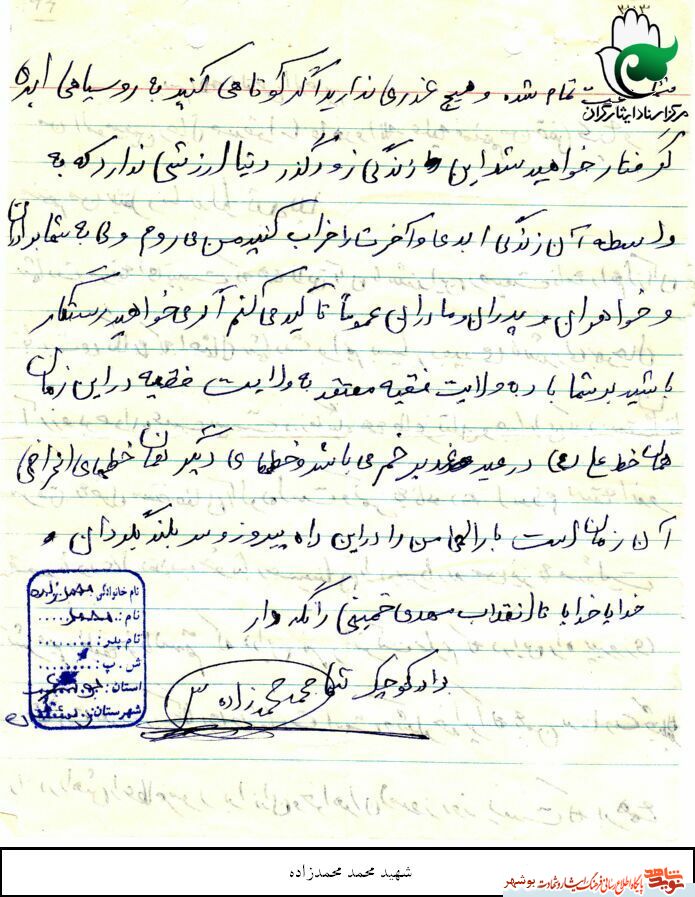 تمام شده و هیچ عذری ندارید اگر کوتاهی کنید به روسیاهی ابدی
مرکز اسناد ایثارگران
گرفتار خواهید شد این زندگی زودگذر دنیا ارزشی ندارد که به
واسطه آن زندگی ابدی و آخرت را خراب کنید من می روم ولی به شما برادران
و خواهران و پدران و مادران عموماً تأکید می کنم اگر می خواهید رستگار
باشید بر شما باد به ولایت فقیه معتقد به ولایت فقیه در این زمان
همان خط علی (ع) در عید غدیر خم می باشد و خطهای دیگر همان خطهای انحرافی
آن زمان است بارالهی من را در این راه پیروز و سربلند بگردان
خدایا خدایا تا انقلاب مهدی خمینی را نگه دار
برادر کوچک شما محمد محمدزاده
نام خانوادگی: محمدزاده
نام: محمد
نام پدر:
ش . پ:
استان: بوشهر
شهرستان:
شهید محمد محمدزاده
نوید شاهد
پایگاه اطلاع رسانی فرهنگ ایثار و شهادت بوشهر